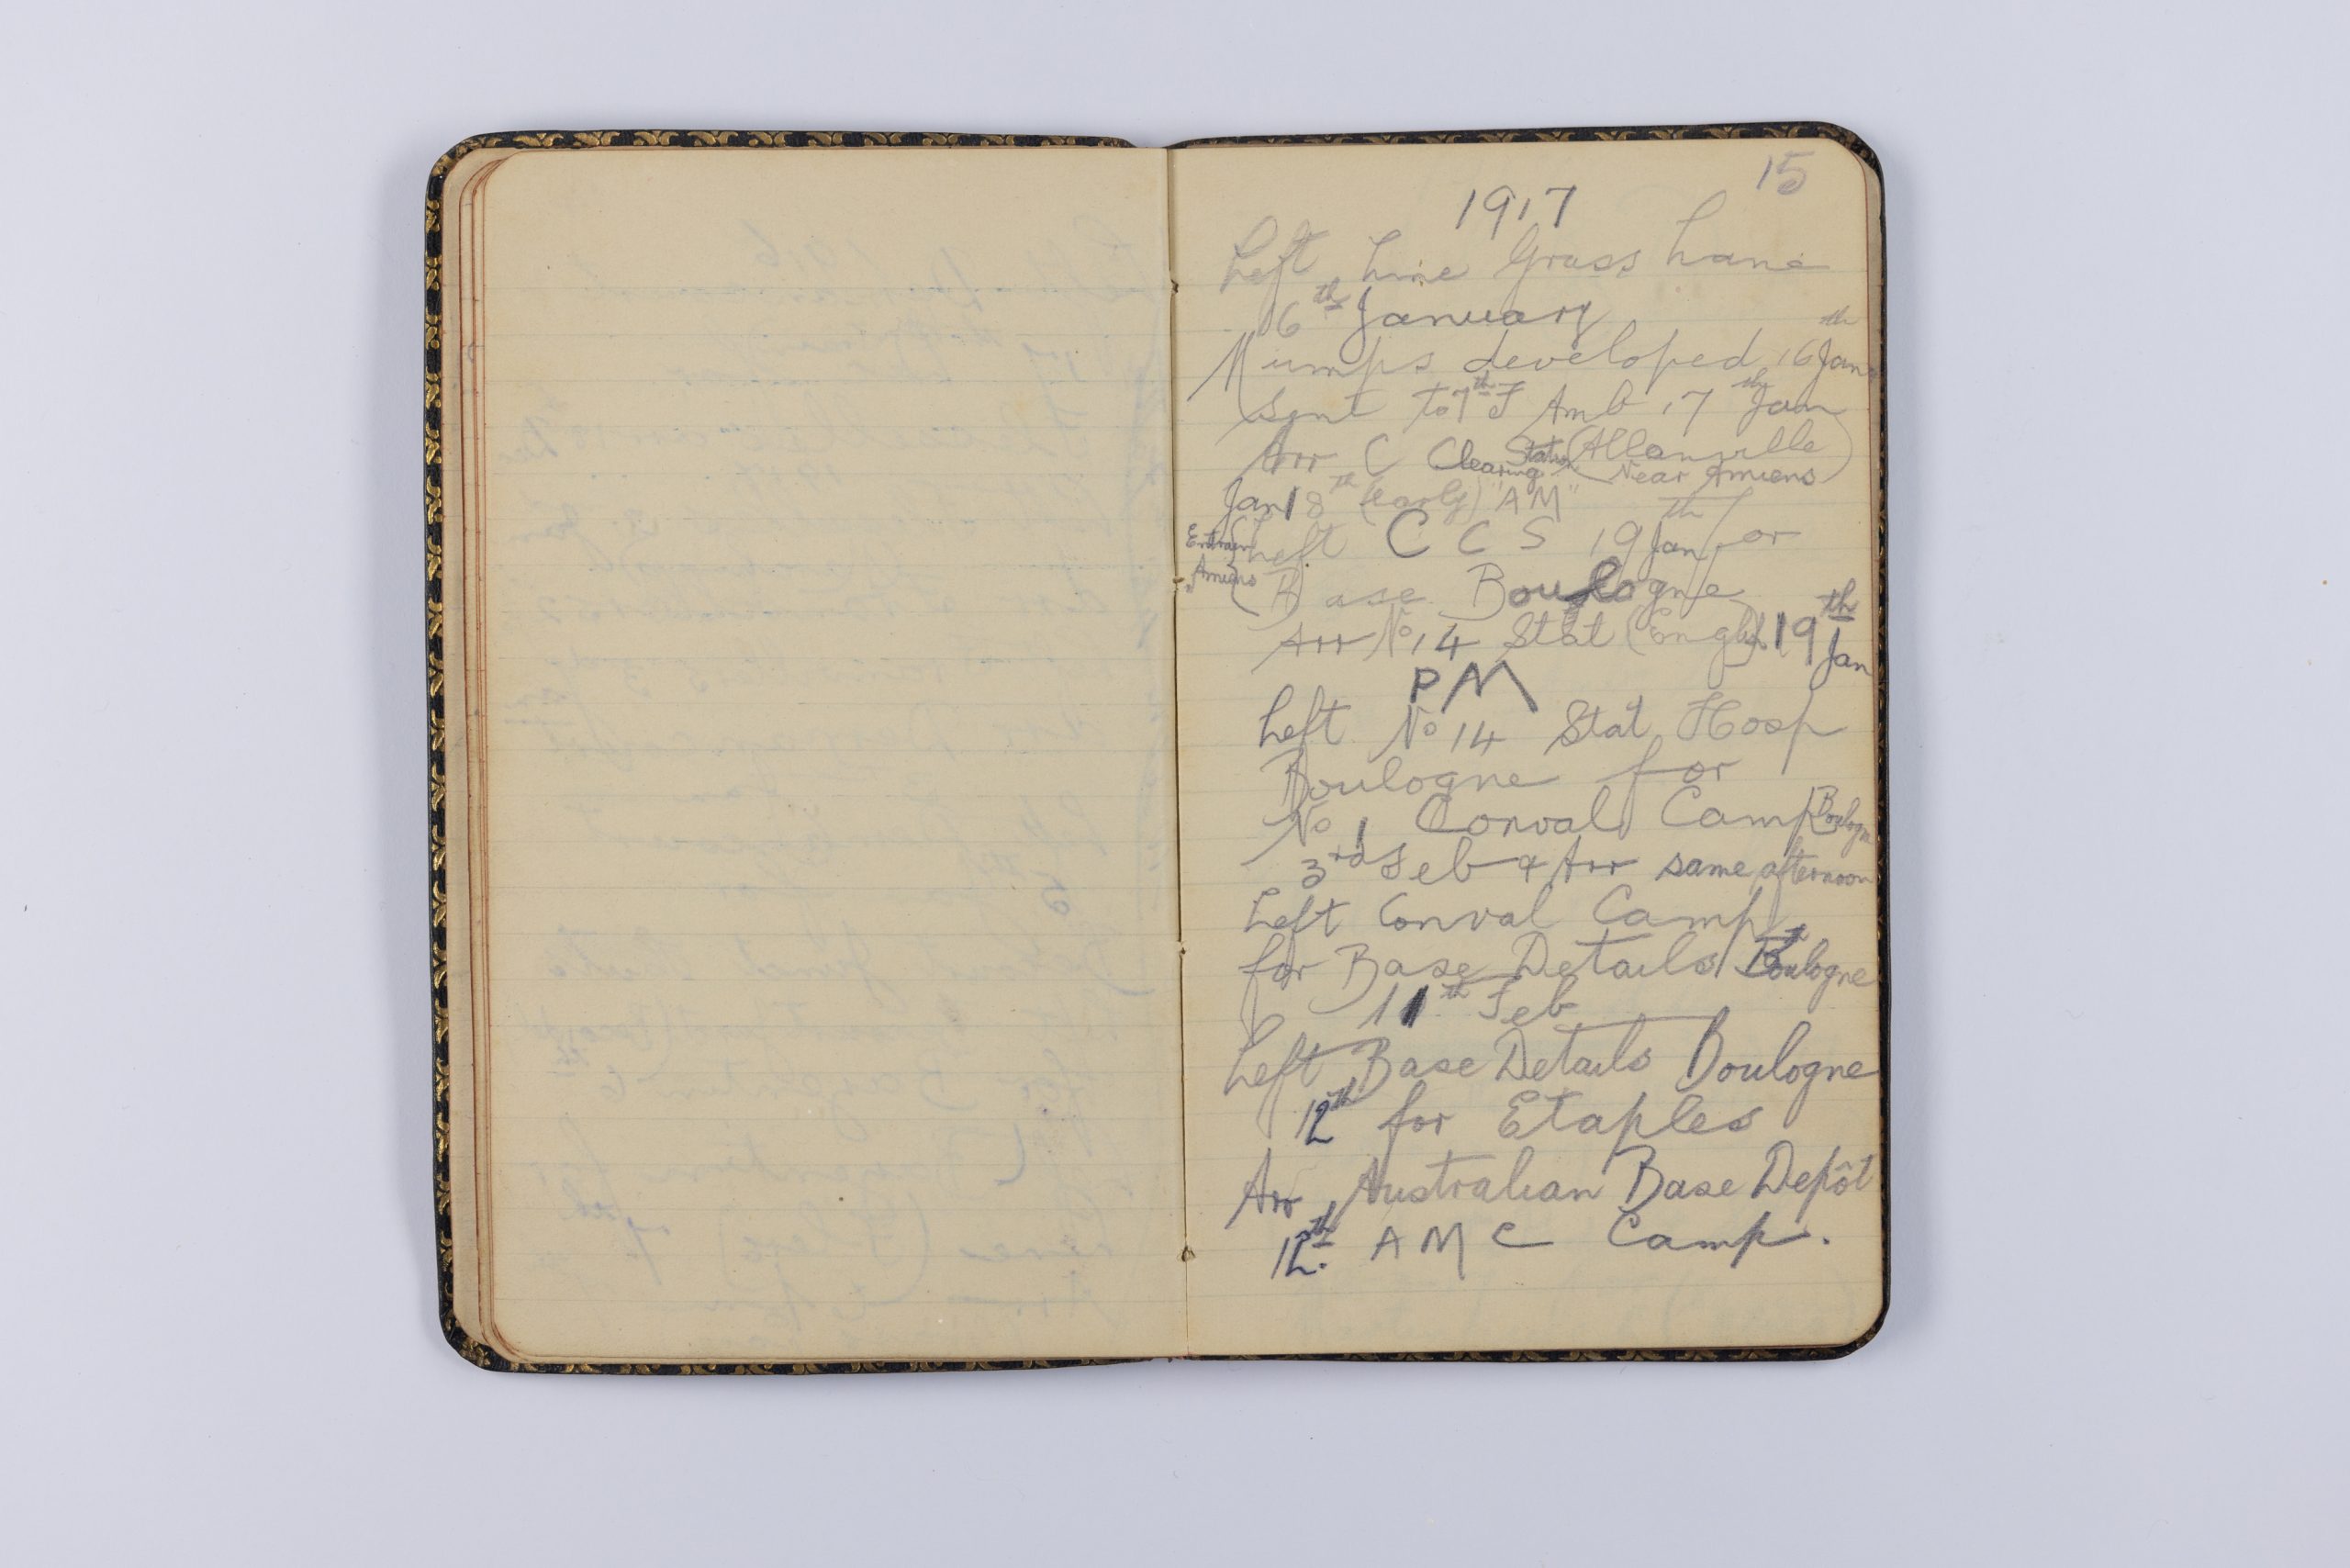 15
1917
Left Line Grass Lane
6th January
Mumps developed 16th Jan
sent to 7th F Amb 17th Jan
Arr C Clearing Station (Allonville
Near Amiens)
Jan 18th (early) "AM"
Entrain Amiens
Left C C S 19th Jan for
Base Boulogne
Arr No 14 Stat (English) 19th Jan
PM
Left No 14 Stat Hosp
Boulogne for
No 1 Conval Camp Boulogne
3rd Feb & Arr same afternoon
Left Conval Camp
for Base Details Boulogne
11th Feb
Left Base Details Boulogne
12th for Etaples
Arr Australian Base Depôt
12th. A M C Camp.